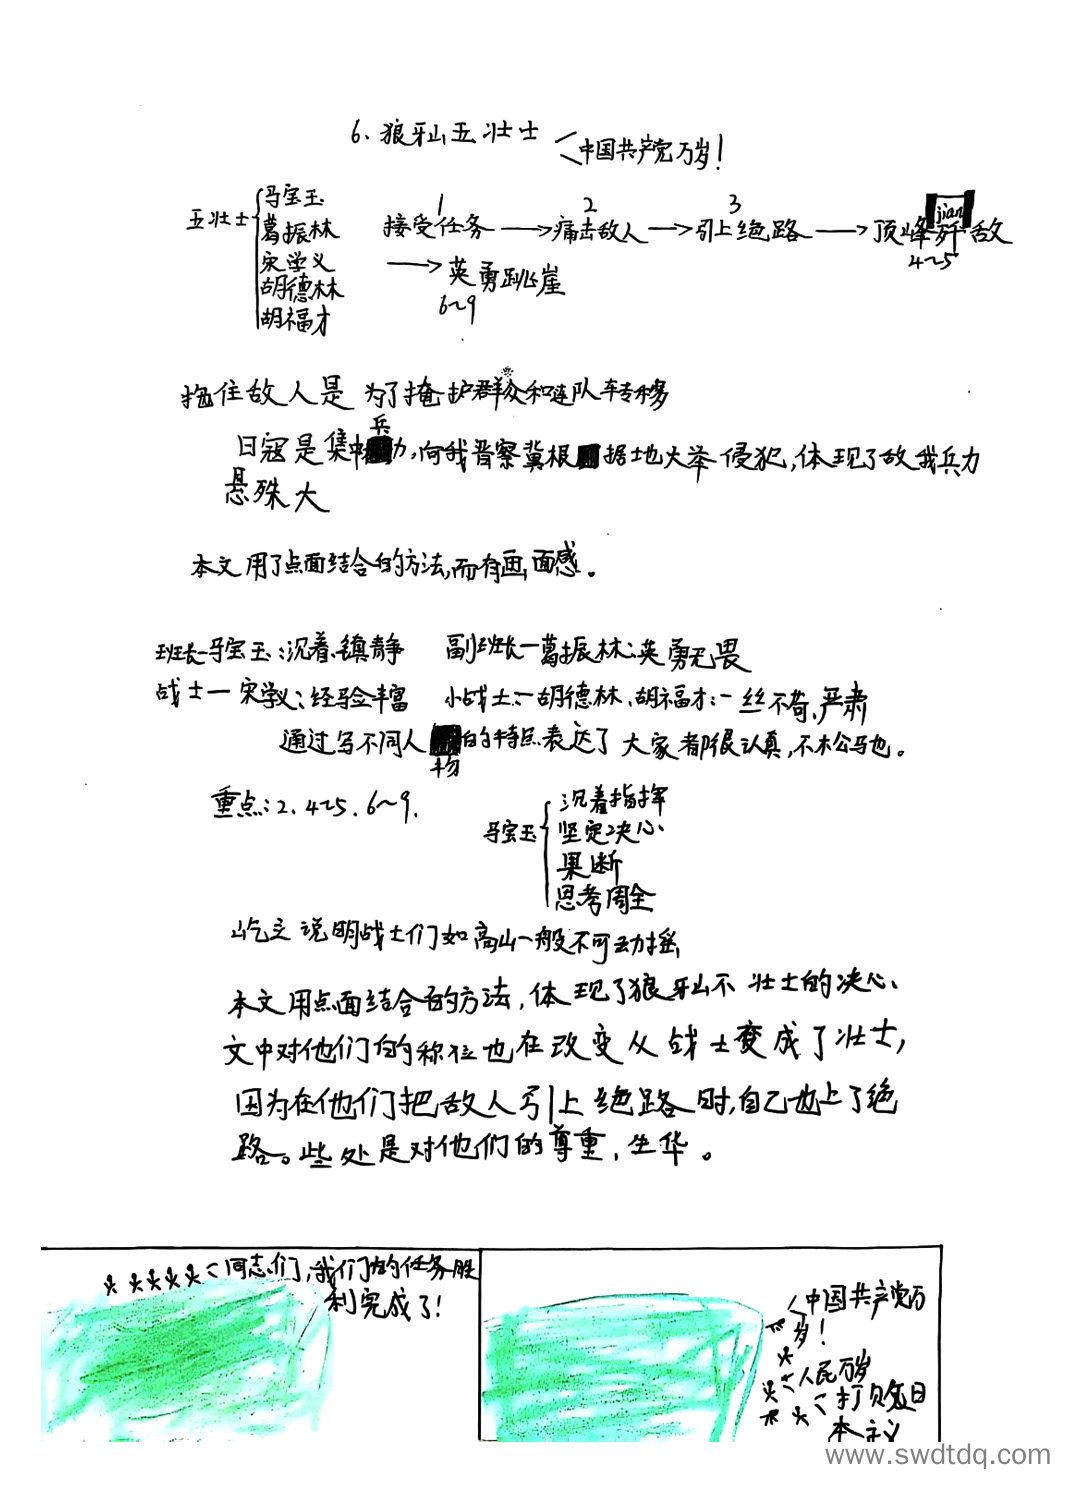 6、狼牙山五壮士
中国共产党万岁!
五壮士
马宝玉
葛振林
宋学义
胡德林
胡福才
1 2 3 jian
接受任务→痛击敌人→引上绝路→顶峰歼敌
4~5
→英勇跳崖
6~9
拖住敌人是 为了掩护群众和连队车专移
兵
日寇是集中力,向我晋察冀根据地大举侵犯,体现了敌我兵力
悬殊大
本文用了点面结合的方法,而有画面感。
班长-马宝玉:沉着、镇静 副班长-葛振林:英勇无畏
战士-宋学义:经验丰富 小战士:-胡德林、胡福才:一丝不苟、严肃
通过写不同人的特点表达了大家都很认真,不松马也。
物
重点:2、4~5、6~9.
马宝玉
沉着指挥
坚定决心
果断
思考周全
屹立说明战士们如高山一般不可动摇
本文用点面结合的方法,体现了狼牙山不壮士的决心、
文中对他们的称位也在改变从战士变成了壮士,
因为在他们把敌人引上绝路时,自己也上了绝
路。些处是对他们的尊重、生华。
同志们,我们的任务胜
利完成了!
中国共产党万
岁!
人民万岁
打败日
本
www.swdtdq.com